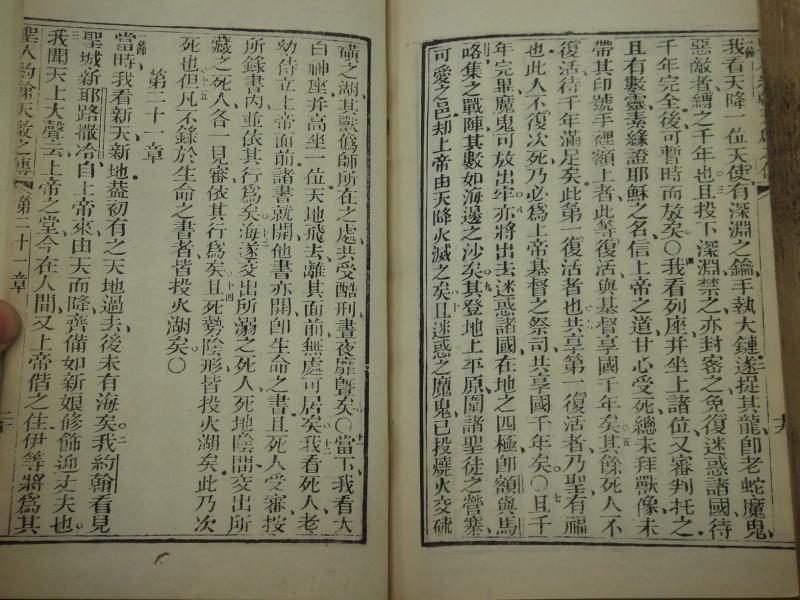 我看天降一位天使有深淵之鑰手執大鏈遂捉其龍卽老蛇魔鬼
惡敵者縛之千年也且投下深淵禁之亦封密之免復迷惑諸國待
千年完全後可暫時而放矣〇我看列座幷坐上諸位又審判托之
且有數靈素緣證耶穌之名信上帝之道甘心受死總未拜獸像未
帶其印號手裡額上者此等復活與基督享國千年矣其餘死人不
復活待千年滿足矣此第一復活者也共享第一復活者乃聖有福
也此人不復次死乃必為上帝基督之祭司共享國千年矣〇且千
年完畢魔鬼可放出牢亦將出去迷惑諸國在地之四極卽額與馬
咯集之戰陣其數如海邊之沙矣其登地上平原圍諸聖徒之營寨
可愛之邑却上帝由天降火滅之矣且迷惑之魔鬼已投燒火交硫
磺之湖其獸偽師所在之處共受酷刑晝夜靡曁矣〇當下我看大
白神座幷高坐一位天地飛去離其面前無處可居矣我看死人老
幼侍立上帝面前諸書就開他書亦開卽生命之書且死人受審按
所錄書內並依其行為矣海遂交出所溺之死人死地陰間交出所
藏之死人各一見審依其行為矣且死勢陰形皆投火湖矣此乃次
死也但凡不錄於生命之書者皆投火湖矣〇
第二十一章
當時我看新天新地蓋初有之天地過去後未有海矣我約翰看見
聖城新耶路撒冷自上帝來由天而降齊備如新娘修飾迎丈夫也
我聞天上大聲云上帝之堂今在人間又上帝偕之住伊等將為其
聖人約翰天啟之傳 第二十一章